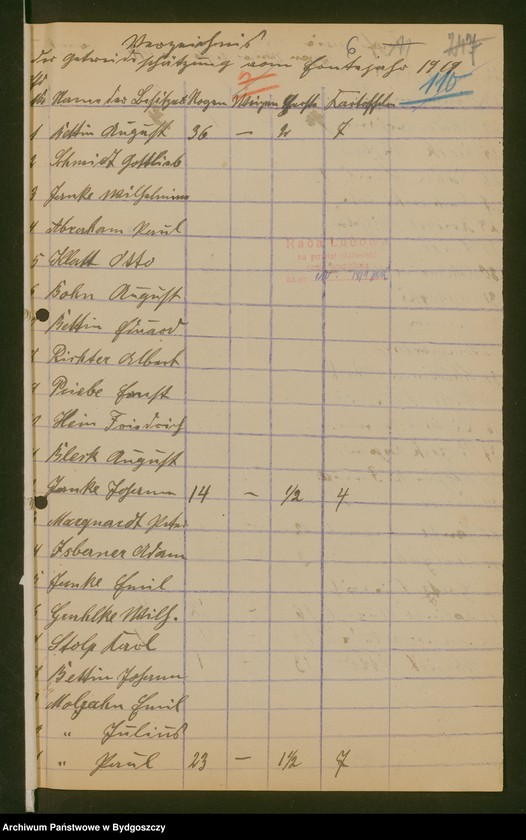 Verzeichnis 6 247
der Getreideschätzung vom Erntejahr 1919
7 116
Name der Besitzer Rogen Weizen Gerste Kartoffeln
1 Bettin August 36 — 2 7
2 Schmidt Gottlieb
3 Janke Wilhelmine
4 Abraham Paul
Rada Ludowa
5 Klatt Otto
6 Bohn August
Bettin Eduard
Richter Albert
Priebe Ernst
Hein Friedrich
Klerk August
Janke Johann 14 — 1/2 4
Marquardt Peter
4 Isbaner Adam
5 Janke Emil
6 Gushlke Wilh.
Stolp Karl
Bettin Johann
Molzahn Emil
" Julius
" Paul 23 — 1 1/2 7
Archiwum Państwowe w Bydgoszczy